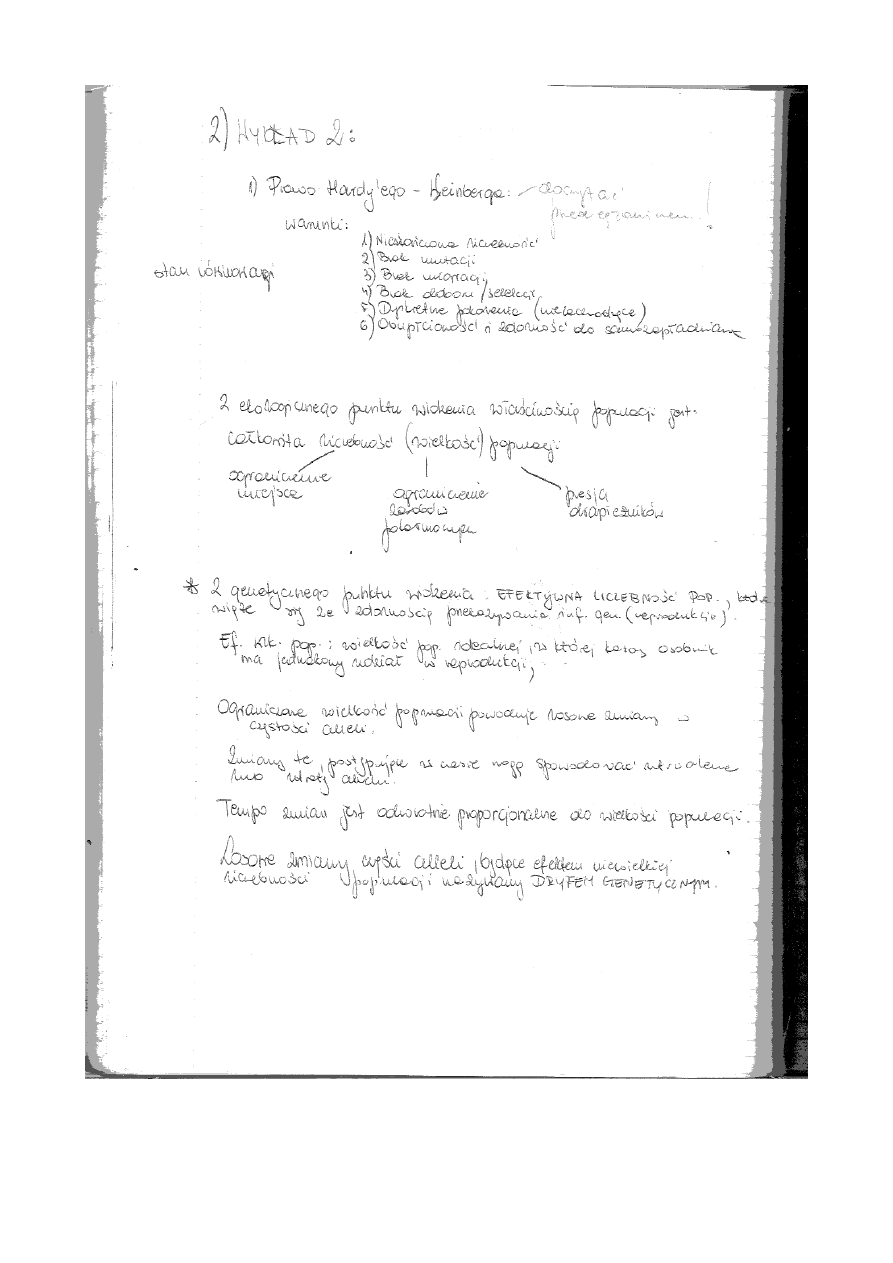 2) WYKŁAD 2:
1) Prawo Hardy'ego - Weinberga: - doczytać
przed egzaminem!
warunki:
1) Nieskończona liczebność
2) Brak mutacji
stan równowagi
3) Brak migracji
4) Brak doboru / selekcji
5) Dyskretne pokolenia (niezachodzące)
6) Obupłciowość i zdolność do samozapładniania
Z ekologicznego punktu widzenia właściwością populacji jest
całkowita liczebność (wielkość) populacji
ograniczenie
miejsca
ograniczenie
zasobów
pokarmowych
presja
drapieżników
* Z genetycznego punktu widzenia: EFEKTYWNA LICZEBNOŚĆ POP., która
wiąże się ze zdolnością przekazywania inf. gen. (reprodukcją).
Ef. wlk. pop.: wielkość pop. idealnej, w której każdy osobnik
ma jednakowy udział w reprodukcji;
Ograniczona wielkość populacji powoduje losowe zmiany w
częstości alleli.
Zmiany te, postępujące w czasie mogą spowodować utrwalenie
lub utratę allelu.
Tempo zmian jest odwrotnie proporcjonalne do wielkości populacji.
Losowe zmiany części alleli, będące efektem niewielkiej
liczebności populacji nazywamy DRYFEM GENETYCZNYM.